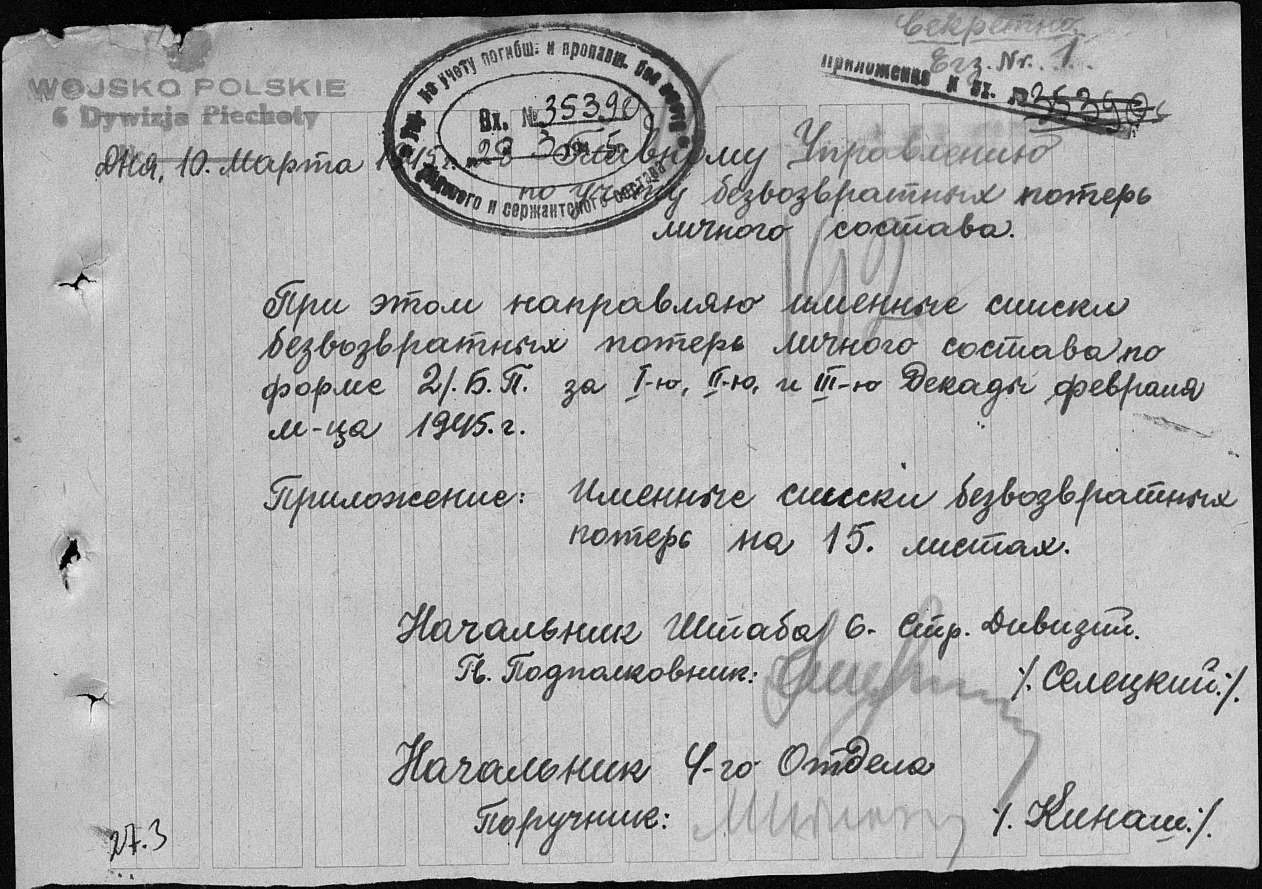 Секретно.
Егз. Nr. 1.
приложения к вх. № 35390с
WOJSKO POLSKIE
6 Dywizja Piechoty
Упр. по учету погибш. и пропавш. без вести
Вх. № 35390
"28" 3 1945 г.
рядового и сержантского состава
Дня, 10. Марта 1945 г.
Главному Управлению
по учету безвозвратных потерь
личного состава.
192
При этом направляю именные списки
безвозвратных потерь личного состава по
форме 2/. Б. П. за I-ю, II-ю, и III-ю Декады февраля
м-ца 1945. г.
Приложение: Именные списки безвозвратных
потерь на 15. листах.
Начальник Штаба 6. Стр. Дивизий.
Гв. Подполковник: /. Селецкий:/.
Начальник 4-го Отдела
Поручник: /. Кинаш:/.
27.3